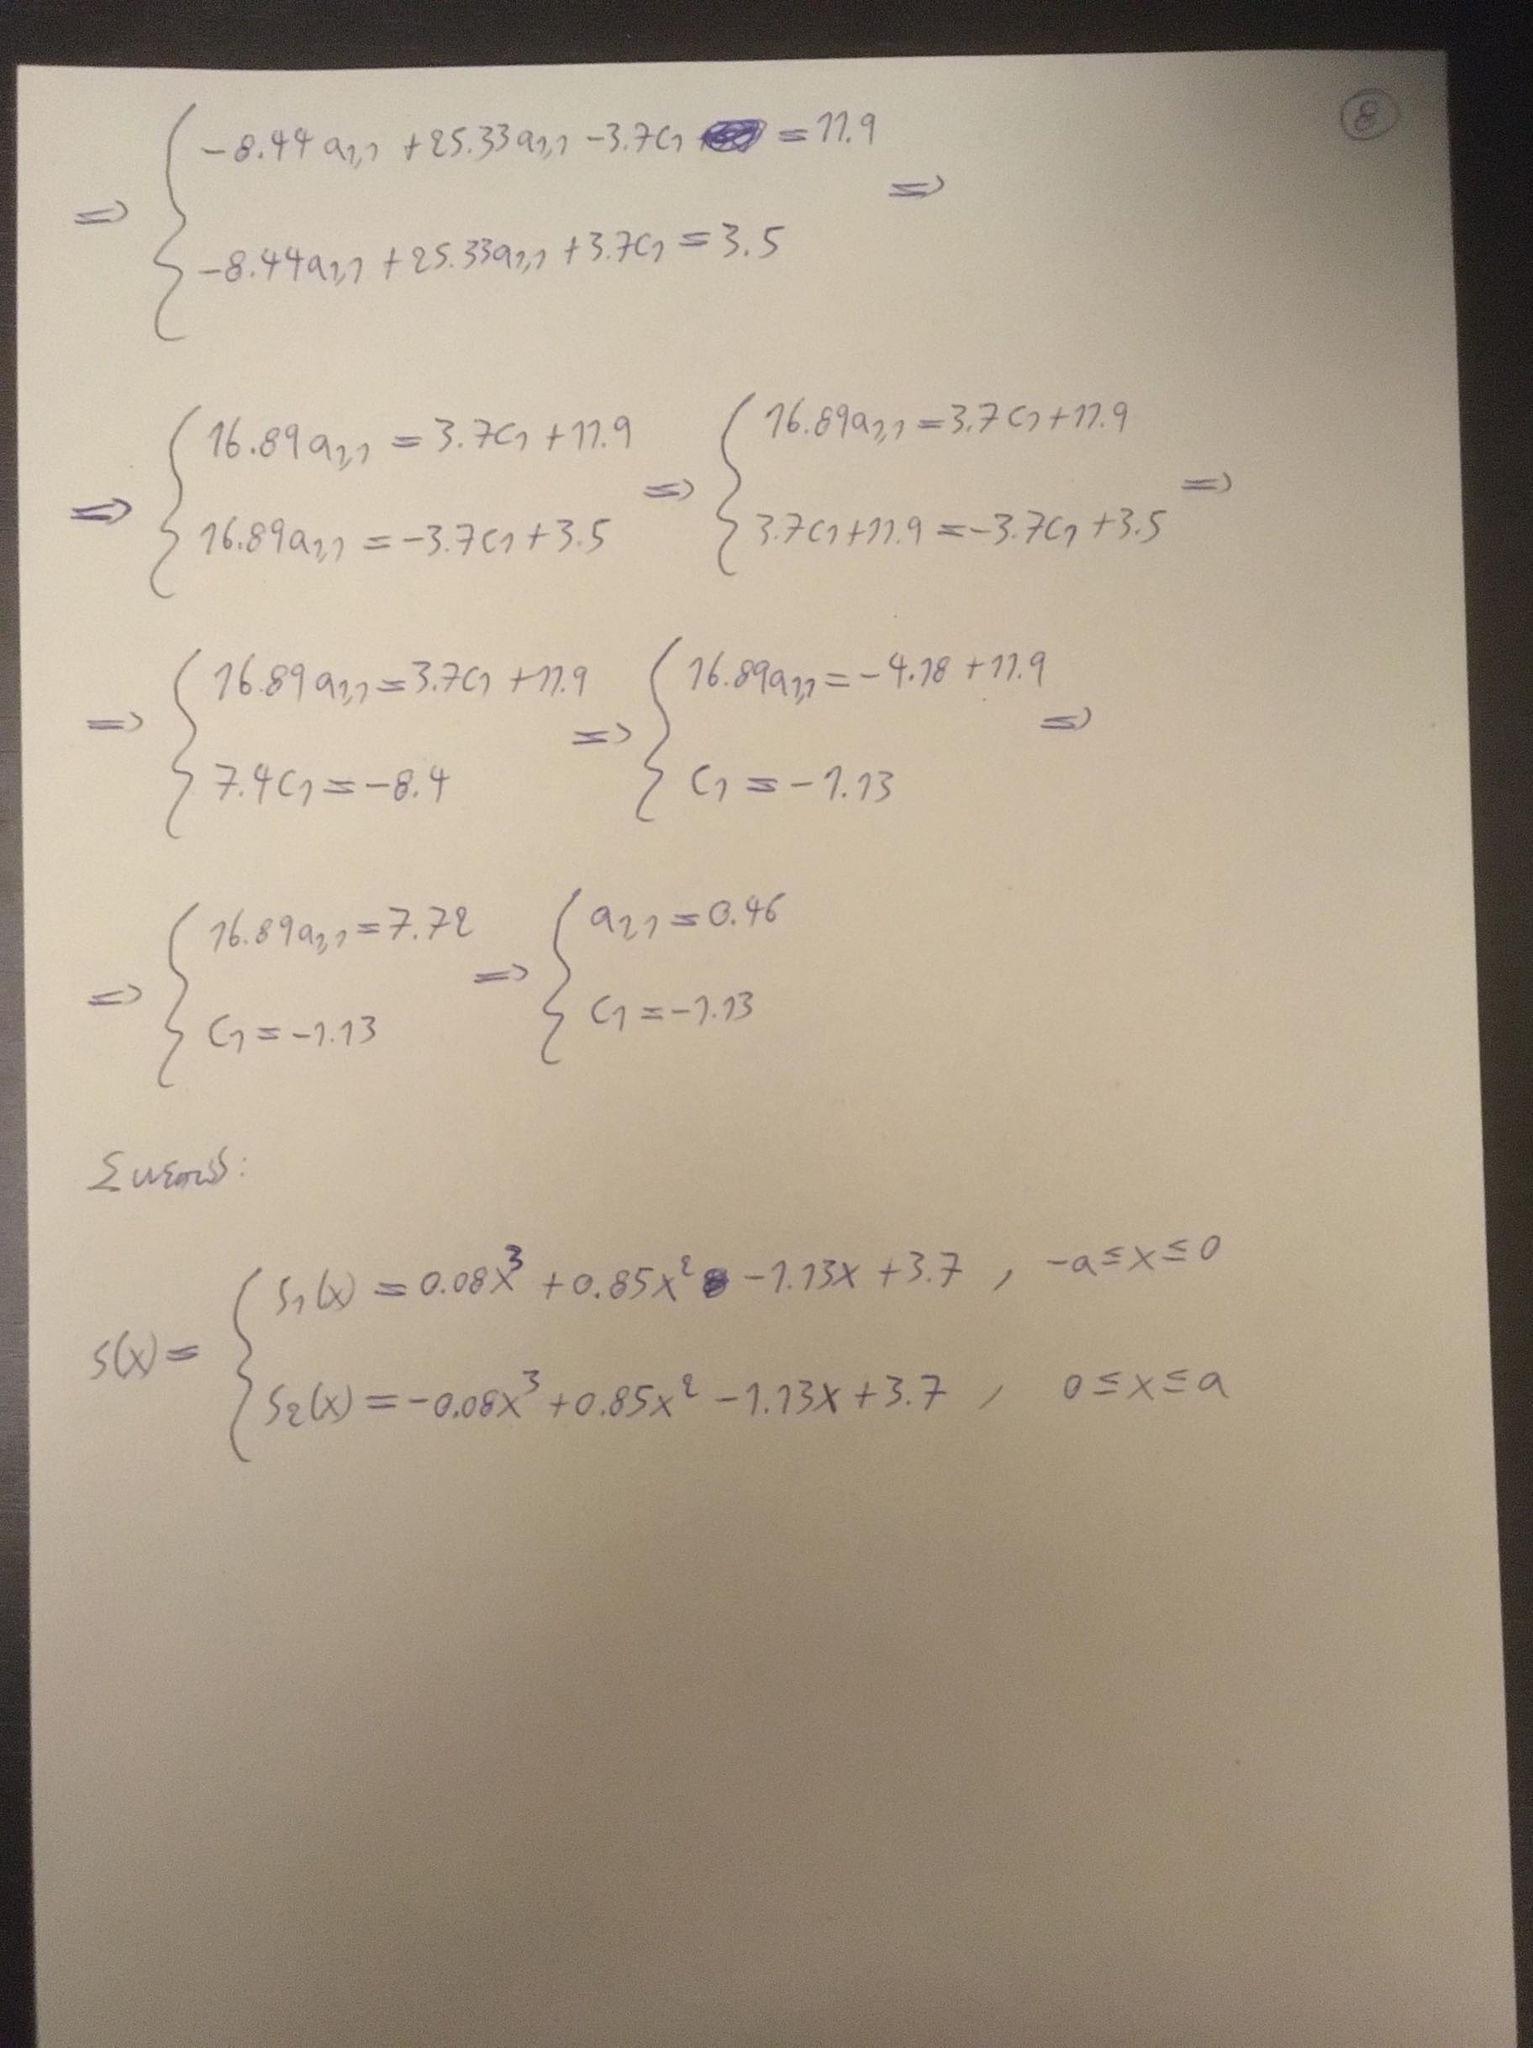 8
⇒ { -8.44a₁,₁ + 25.33a₁,₁ - 3.7c₁ = 11.9 ⇒
-8.44a₁,₁ + 25.33a₁,₁ + 3.7c₁ = 3.5
⇒ { 16.89a₁,₁ = 3.7c₁ + 11.9 ⇒ { 16.89a₁,₁ = 3.7c₁ + 11.9 ⇒
16.89a₁,₁ = -3.7c₁ + 3.5 3.7c₁ + 11.9 = -3.7c₁ + 3.5
⇒ { 16.89a₁,₁ = 3.7c₁ + 11.9 ⇒ { 16.89a₁,₁ = -4.18 + 11.9 ⇒
7.4c₁ = -8.4 c₁ = -1.13
⇒ { 16.89a₁,₁ = 7.72 ⇒ { a₂₁ = 0.46
c₁ = -1.13 c₁ = -1.13
Συνεπώς:
s(x) = { s₁(x) = 0.08x³ + 0.85x² - 1.13x + 3.7 , -a ≤ x ≤ 0
s₂(x) = -0.08x³ + 0.85x² - 1.13x + 3.7 , 0 ≤ x ≤ a